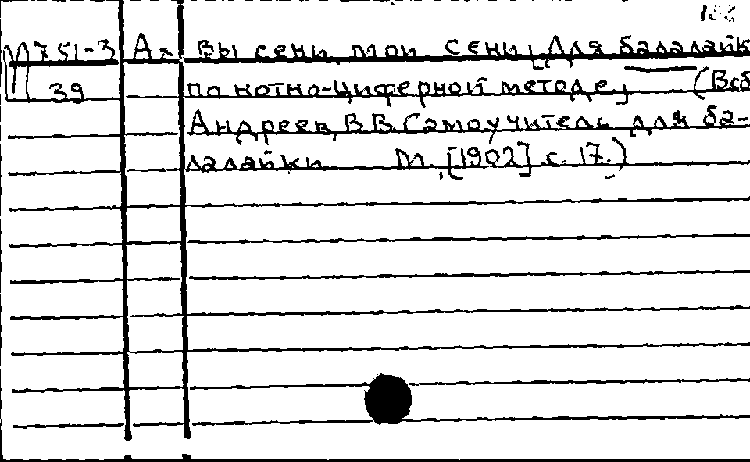 М 751-3 Ал Вы сени мои сени [Для балалайк
39 по нотно-циферной методе] (В сб
Андреев, В В Самоучитель для ба-
лалайки М, [1902] с. 17.)